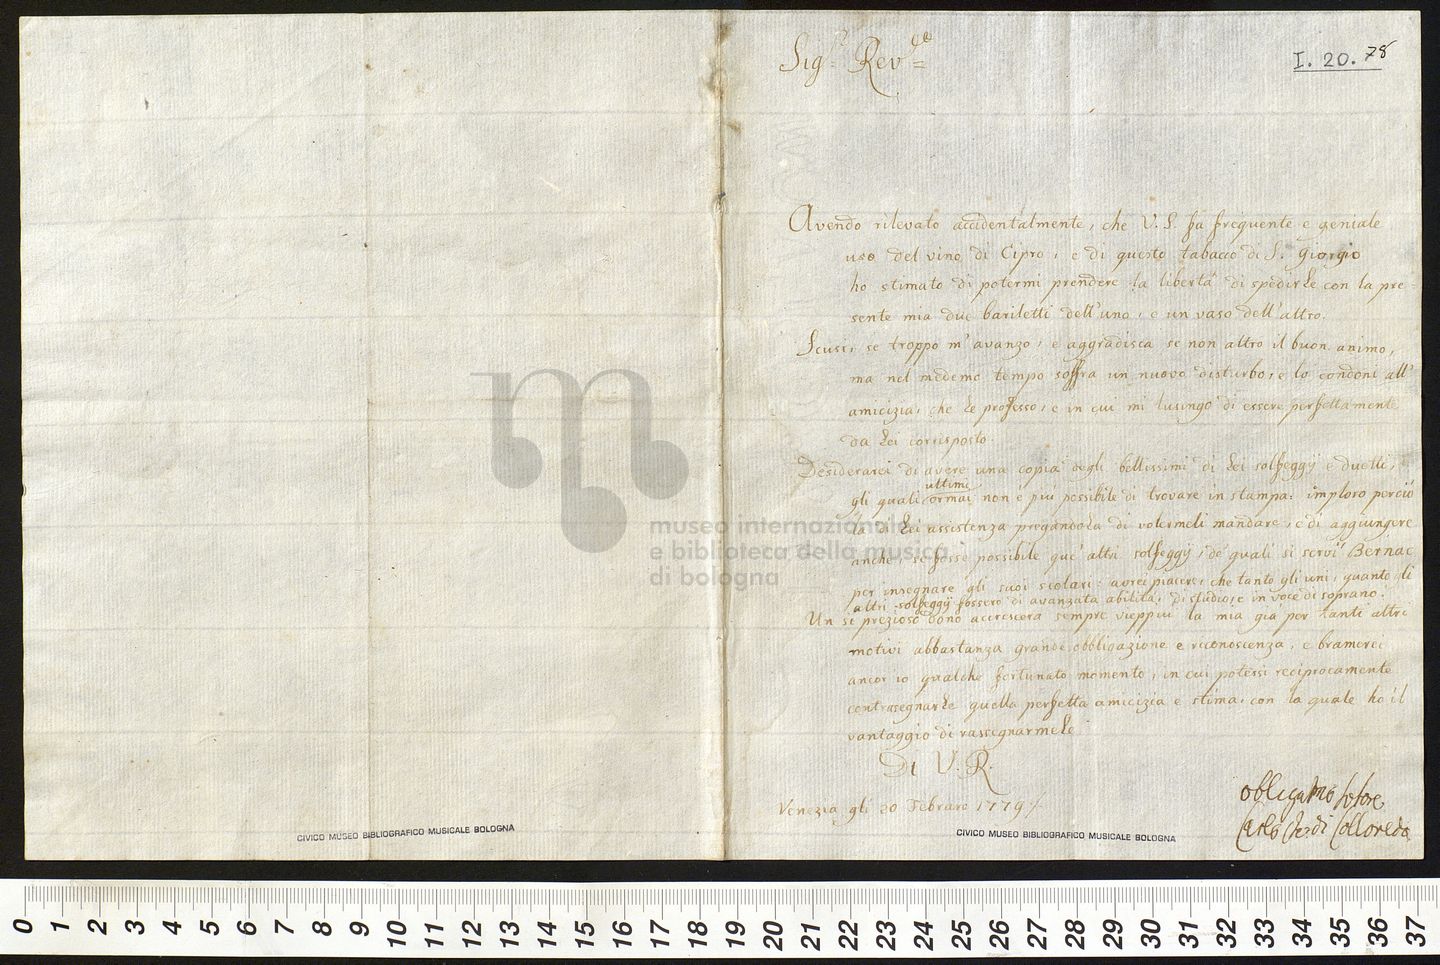 Sig.r Rev.do
I. 20. 78
Avendo rilevato accidentalmente, che V. S. fa frequente e geniale
uso del vino di Cipro, e di questo tabacco di S. Giorgio
ho stimato di potermi prendere la libertà di spedirLe con la pre=
sente mia due bariletti dell'uno, e un vaso dell'altro.
Scusi, se troppo m'avanzo, e aggradisca se non altro il buon animo,
ma nel medemo tempo soffra un nuovo disturbo, e lo condoni all'
amicizia, che Le professo, e in cui mi lusingo di essere perfettamente
da Lei corrisposto.
Desiderarei di avere una copia degli bellissimi di Lei solfeggÿ e duetti,
ultimi
gli quali ormai non è più possibile di trovare in stampa: imploro perciò
la di Lei assistenza pregandola di volermeli mandare, e di aggiungere
anche, se fosse possibile que' altri solfeggÿ, de' quali si servì Bernac
per insegnare gli suoi scolari: avrei piacere, che tanto gli uni, quanto gli
altri solfeggÿ fossero di avanzata abilità, di studio, e in voce di soprano.
Un sì prezioso dono accrescerà sempre vieppiù la mia già per tanti altri
motivi abbastanza grande obbligazione e riconoscenza, e bramerei
ancor io qualche fortunato momento, in cui potersi reciprocamente
contrasegnarLe quella perfetta amicizia e stima, con la quale ho il
vantaggio di rassegnarmeLe
Di V. R.
Venezia gli 20 Febraro 1779
Carlo di Colloredo
CIVICO MUSEO BIBLIOGRAFICO MUSICALE BOLOGNA
CIVICO MUSEO BIBLIOGRAFICO MUSICALE BOLOGNA
museo internazionale
e biblioteca della musica
di bologna
0 1 2 3 4 5 6 7 8 9 10 11 12 13 14 15 16 17 18 19 20 21 22 23 24 25 26 27 28 29 30 31 32 33 34 35 36 37